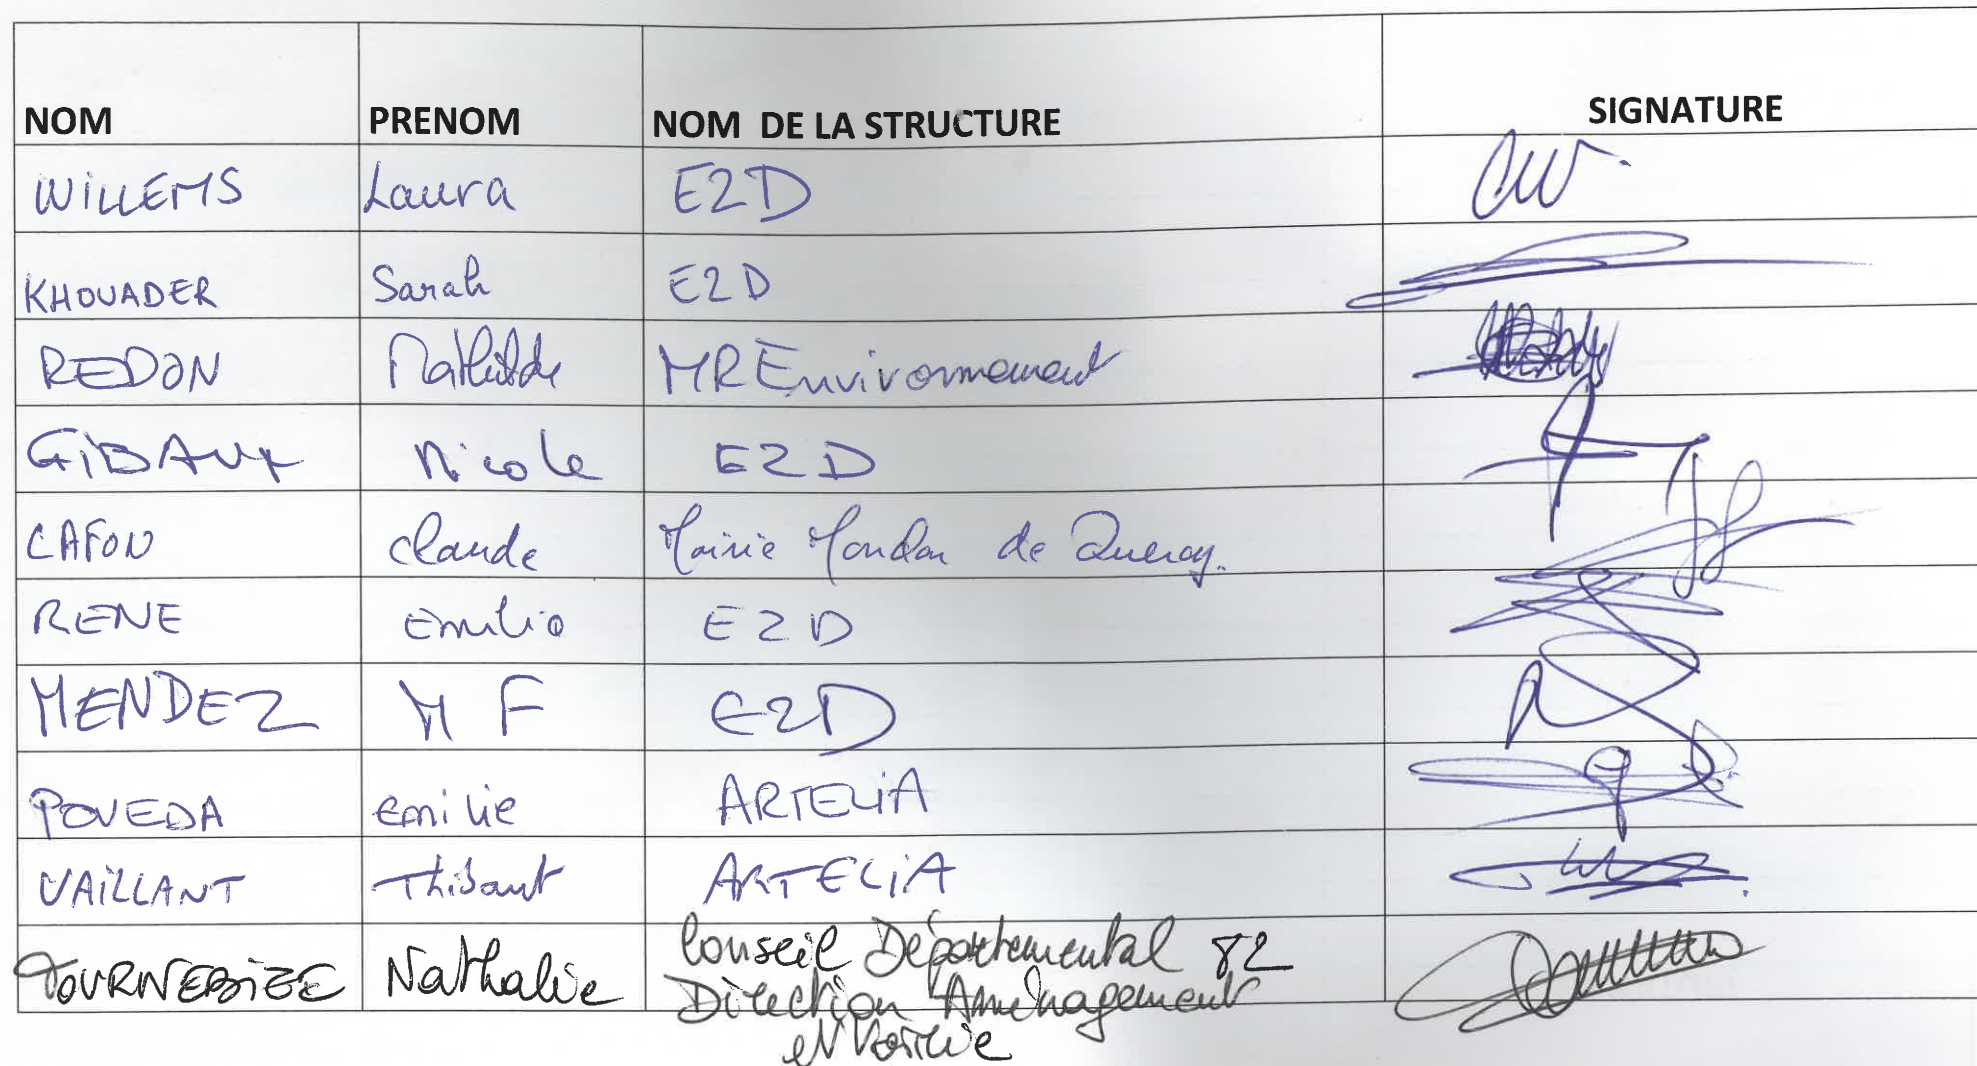 NOM PRENOM NOM DE LA STRUCTURE SIGNATURE
WILLEMS Laura E2D
KHOUADER Sarah E2D
REDON Mathilde MR Environnement
GIBAUX Nicole E2D
CAFON Claude Mairie de Quercy.
RENE Emilie E2D
MENDEZ M F E2D
POVEDA Emilie ARTELIA
VAILLANT Thibaut ARTELIA
TOURNEBIZE Nathalie Conseil Départemental 82
Direction Aménagement
et Voirie